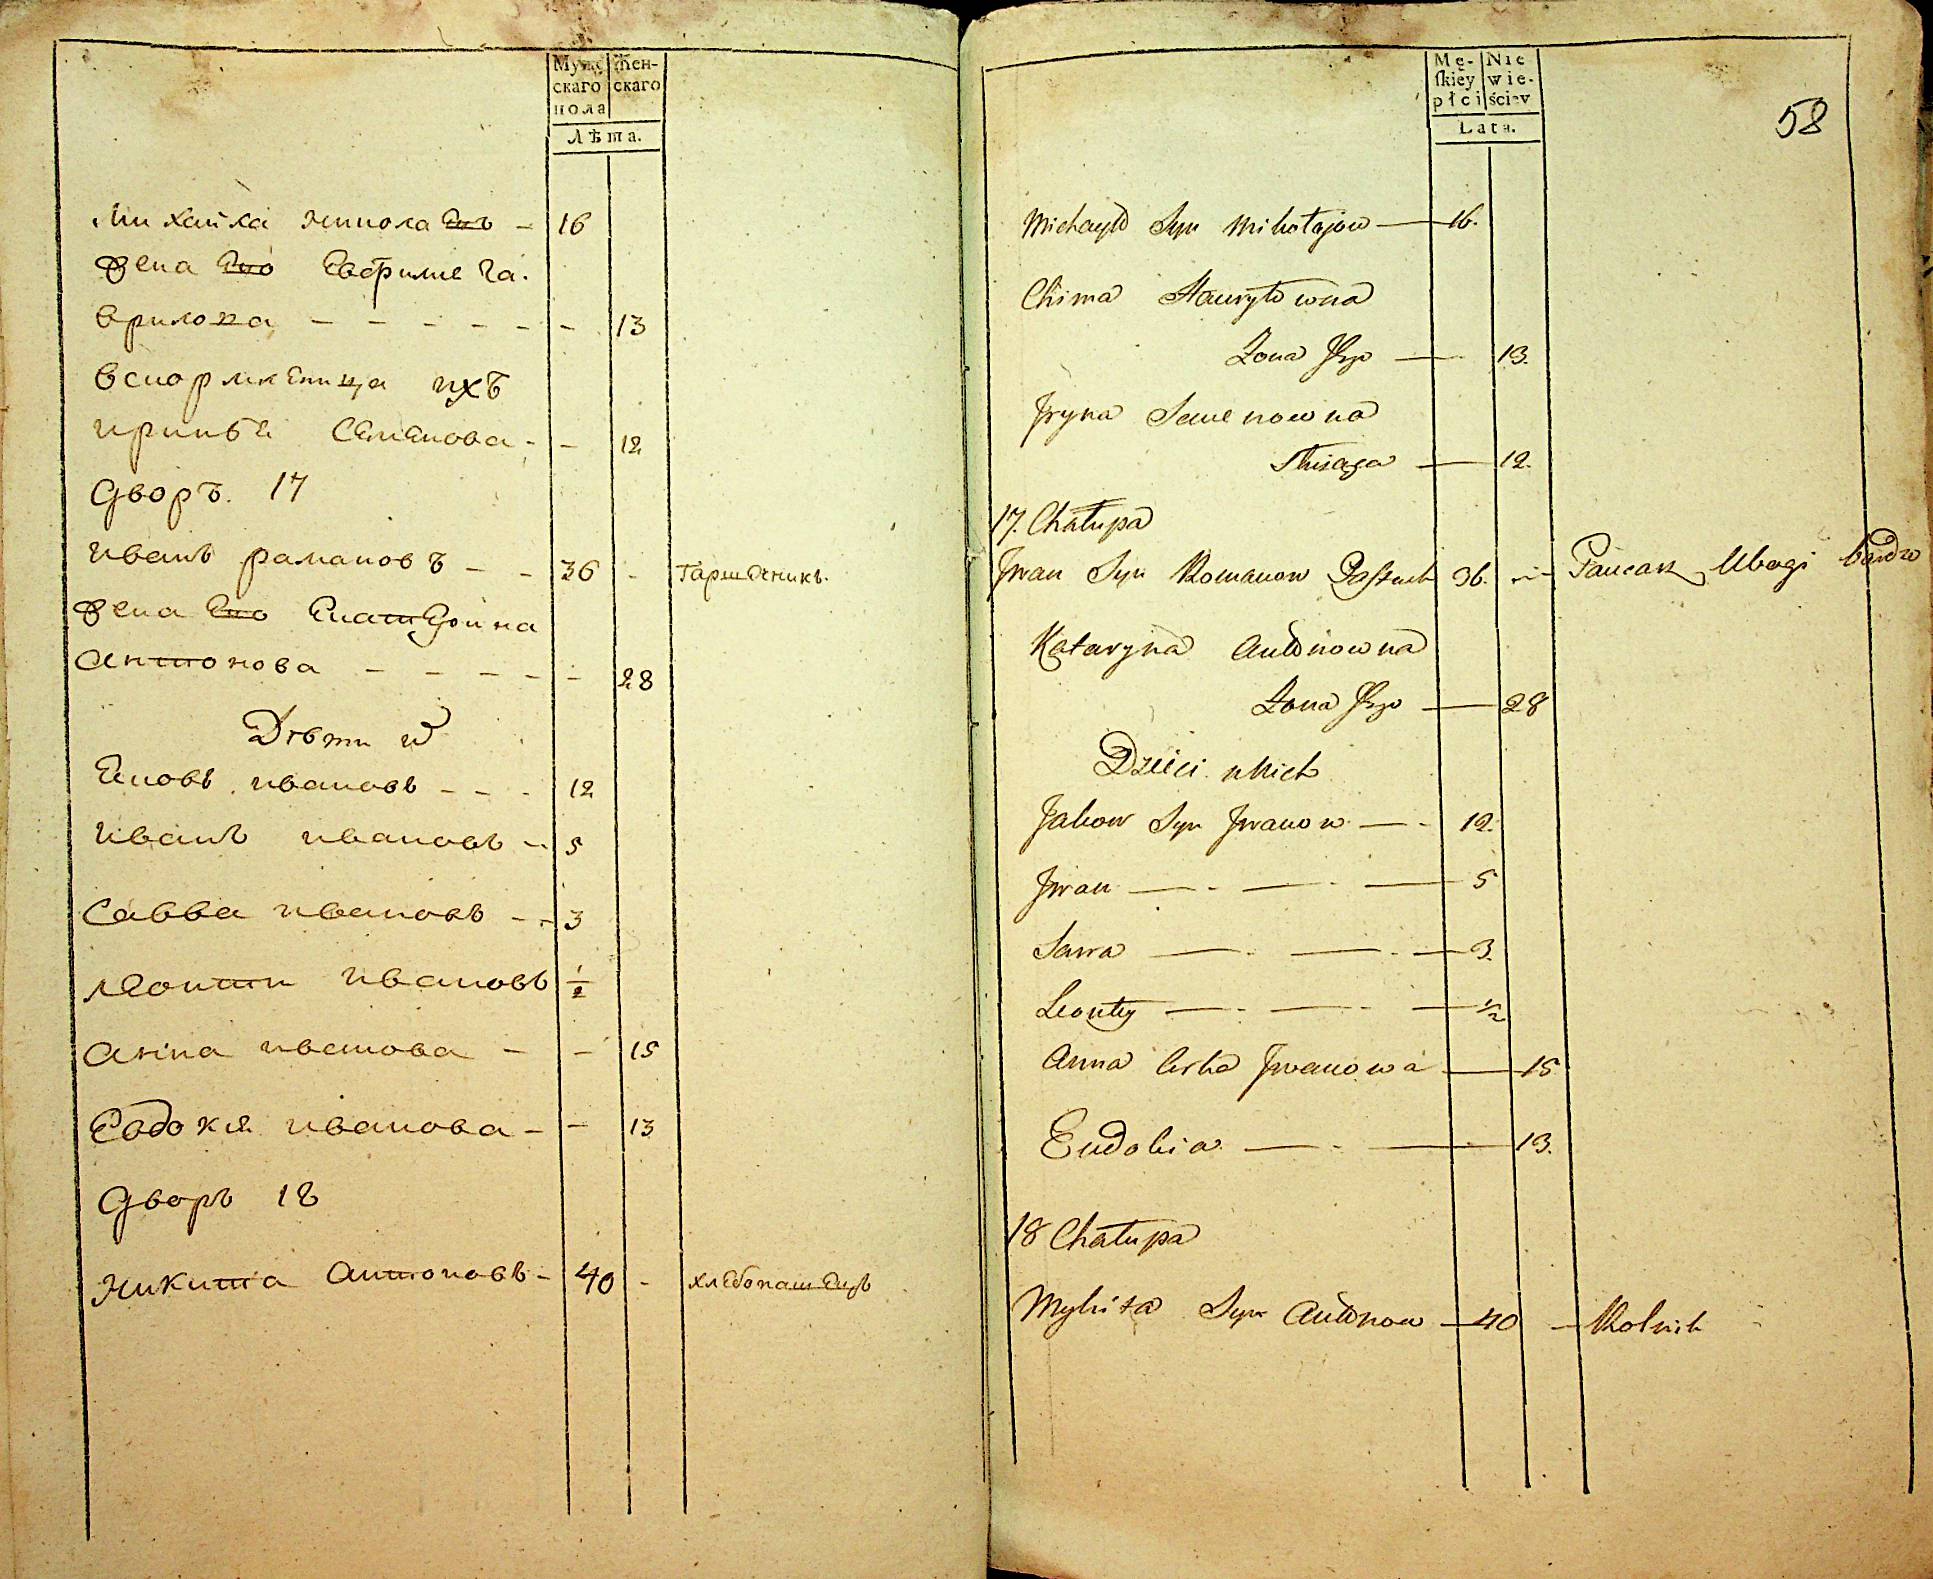 Муж-
скаго
пола
Жен-
скаго
Лѣта.
Михайла Николаевъ - 16
жена Ево Евфимие Га-
врилова - - - - - - 13
вскормленница ихъ
ирина Семенова - - 12
Дворъ. 17
иванъ рамановъ - - 36 - Гаршечникъ.
жена Ево Екатерина
антонова - - - - - 28
Дѣти
Яковъ ивановъ - - - 12
иванъ ивановъ - - 5
Савва ивановъ - - 3
леонти ивановъ 1/2
анна иванова - - 15
Евдокия иванова - - 13
Дворъ 18
Никита антоновъ - 40 - хлебопашецъ
Mę-
ſkiey
płci
Nie
wie-
ściey
Lata.
58
Michayło Syn Mikołajow — 16.
Chima Hawryłowna
Żona Jego — 13.
Jryna Semenowna
Sługa — 12.
17. Chałupa
Jwan Syn Romanow Pastuch 36. Ubogi bardzo
Kataryna Antonowna
Żona Jego — 28
Dzieci u Nich
Jakow Syn Jwanow — - 12.
Jwan — - — - — 5
Sawa — - — - — 3.
Leonty — - — - — 1/2
Anna Corka Jwanowa — 15
Eudokia — - — 13.
18 Chałupa
Mykita Syn Antonow — 40 — Rolnik